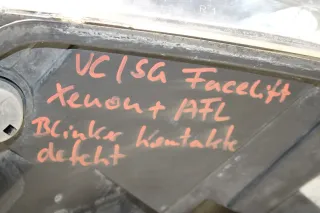 VC/SG Facelift
Xenon + AFL
Blinker Kontakte
defekt